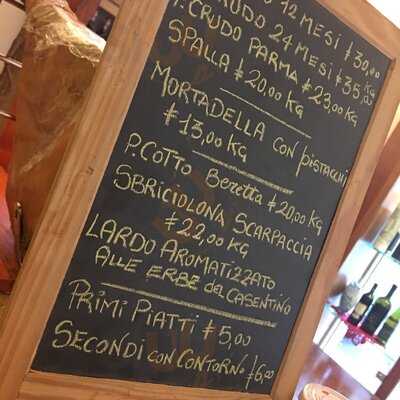 CRUDO 12 MESI € 30,00
CRUDO 24 MESI € 35,00 KG
P. CRUDO PARMA € 23,00 KG
SPALLA € 20,00 KG
MORTADELLA CON PISTACCHI
€ 13,00 KG
P. COTTO Beretta € 20,00 KG
SBRICIOLONA SCARPACCIA
€ 22,00 KG
LARDO AROMATIZZATO
ALLE ERBE del CASENTINO
PRIMI PIATTI € 5,00
SECONDI CON CONTORNO €6,00